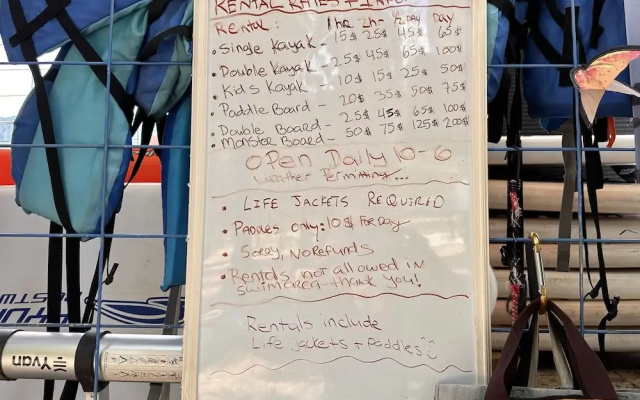 RENTAL RATES + INFO
Rental: 1hr 2hr ½ DAY DAY
• Single Kayak - 15$ 25$ 45$ 65$
• Double Kayak - 25$ 45$ 65$ 100$
• Kid's Kayak - 10$ 15$ 25$ 50$
• Paddle Board - 20$ 35$ 50$ 75$
• Double Board - 25$ 45$ 65$ 100$
• Monster Board - 50$ 75$ 125$ 200$
OPEN Daily 10-6
weather Permitting...
• LIFE JACKETS REQUIRED
• Paddles only: 10$ For day
• Sorry, No Refunds
• Rentals not allowed in
swim area thank you!
Rentals include
Life jackets + Paddles
Yvan